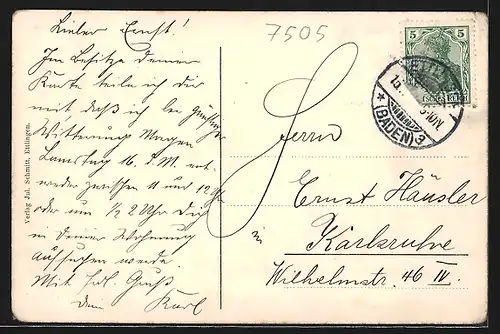 Lieber Ernst!
Im Besitze deiner
Karte teile ich dir
mit daß ich bei günstiger
Witterung Morgen
Samstag 16. d. M. ent-
weder zwischen 11 und 12 Uhr
oder um 1/2 2 Uhr Dich
in Deiner Wohnung
aufsuchen werde
Mit frdl. Gruß
dein Karl
Verlag Jul. Schmitt, Ettlingen.
7505
5
5
(BADEN) 3
Herrn
Ernst Häusler
in Karlsruhe
Wilhelmstr. 46 IV.